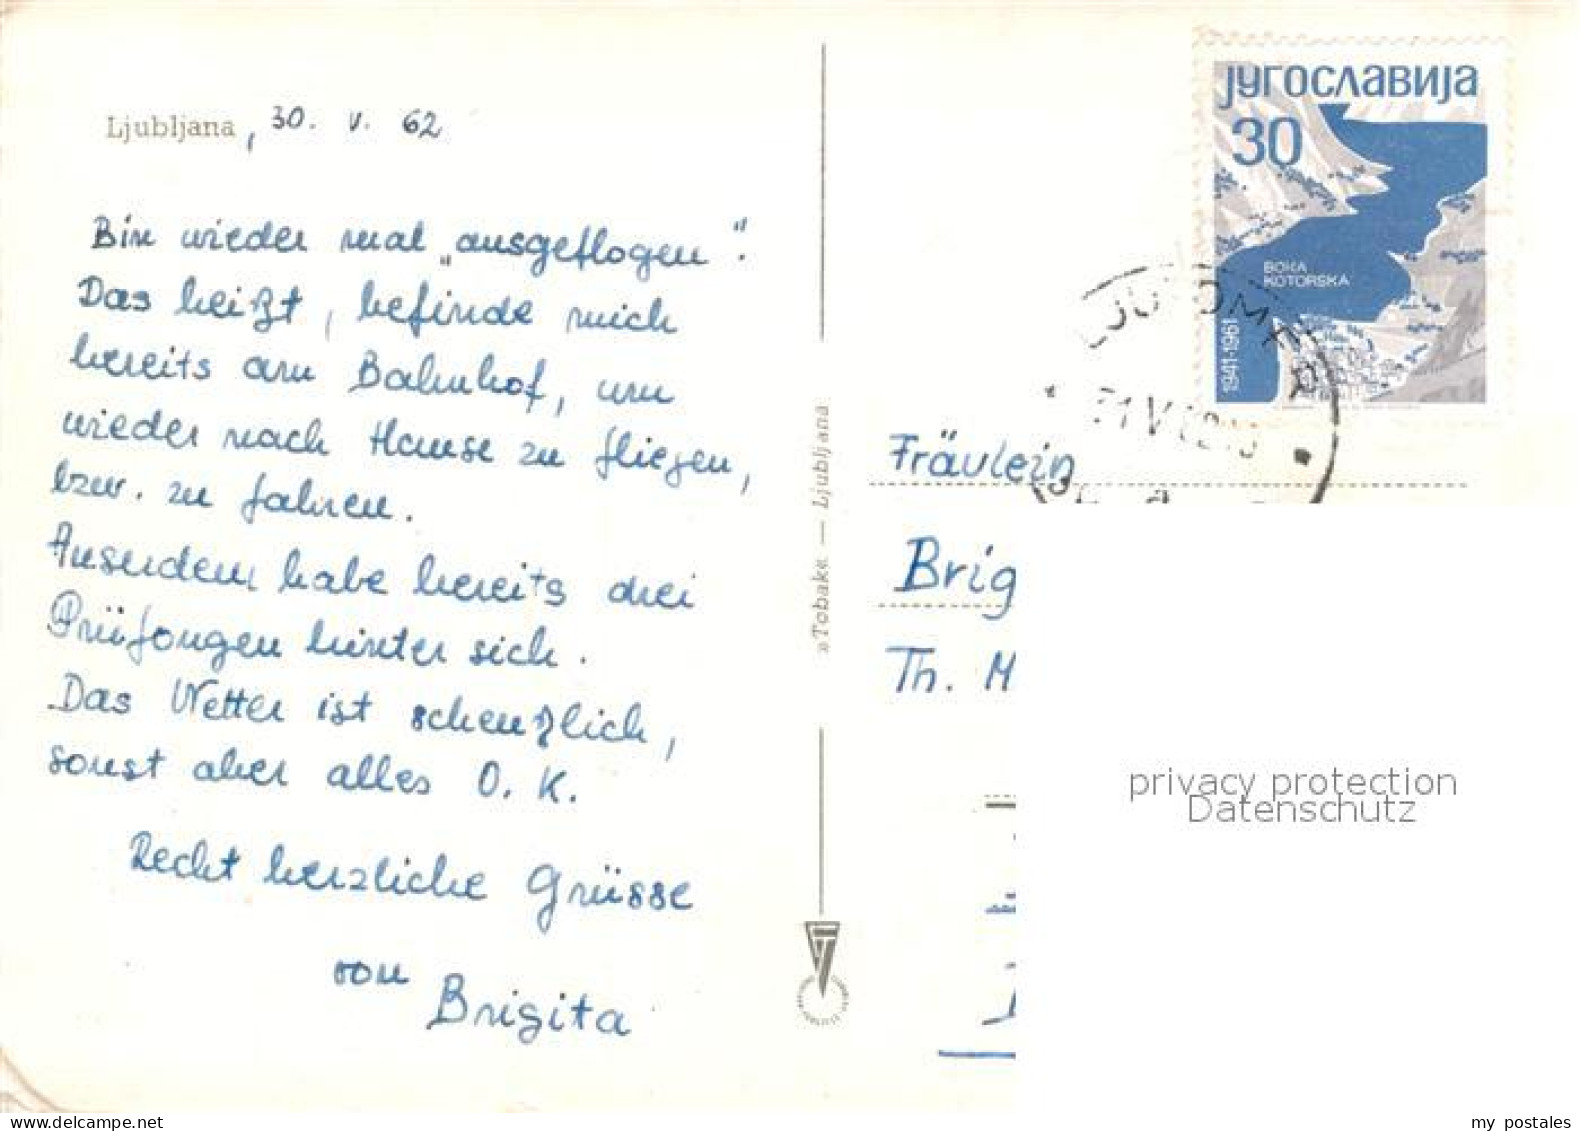 Ljubljana, 30. V. 62
Bin wieder mal „ausgeflogen".
Das heißt, befinde mich
bereits am Bahnhof, um
wieder nach Hause zu fliegen,
bzw. zu fahren.
Auserdem habe bereits drei
Prüfongen hinter sich.
Das Wetter ist scheußlich,
sonst aber alles O.K.
Recht herzliche Grüsse
von
Brigita
»Tobake — Ljubljana
Југославија
30
BOKA
KOTORSKA
1941-1961
Fräulein
Brig
Th. M
privacy protection
Datenschutz
my postales